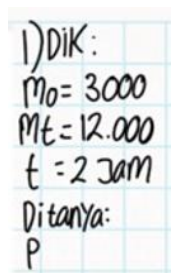 1) DiK:
Mo = 3000
Mt = 12.000
t = 2 Jam
Ditanya:
P